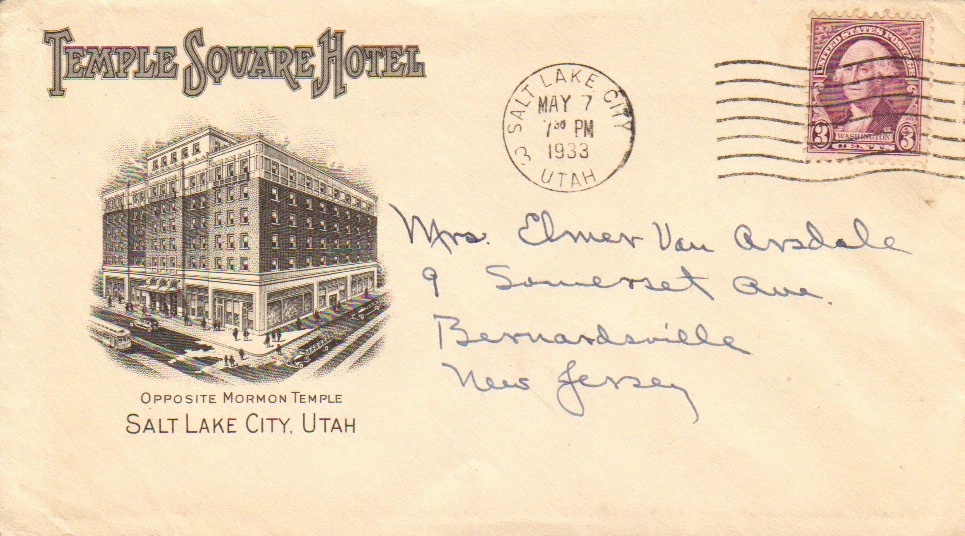 TEMPLE SQUARE HOTEL
OPPOSITE MORMON TEMPLE
SALT LAKE CITY, UTAH
SALT LAKE CITY
MAY 7
7 30 PM
1933
3 UTAH
UNITED STATES POSTAGE
3 WASHINGTON 3
CENTS
Mrs. Elmer Van Arsdale
9 Somerset Ave.
Bernardsville
New Jersey